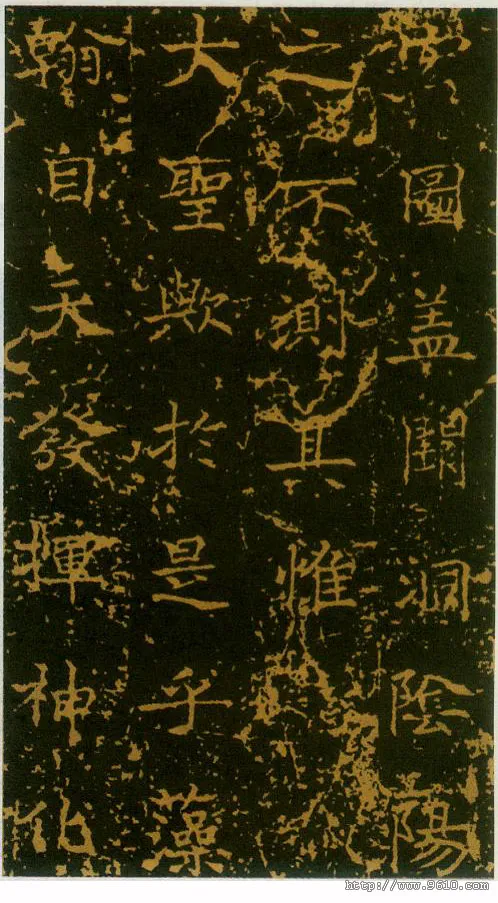 圖盖闡洞陰陽
之不測其惟
大聖歟於是乎藻
翰自天發揮神化
http://www.9610.com